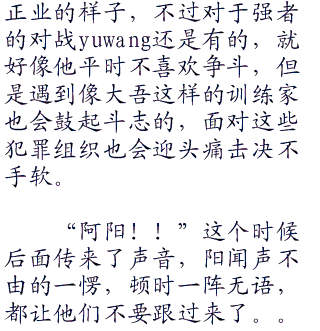 正业的样子，不过对于强者
的对战yuwang还是有的，就
好像他平时不喜欢争斗，但
是遇到像大吾这样的训练家
也会鼓起斗志的，面对这些
犯罪组织也会迎头痛击决不
手软。
“阿阳！！”这个时候
后面传来了声音，阳闻声不
由的一愣，顿时一阵无语，
都让他们不要跟过来了。。